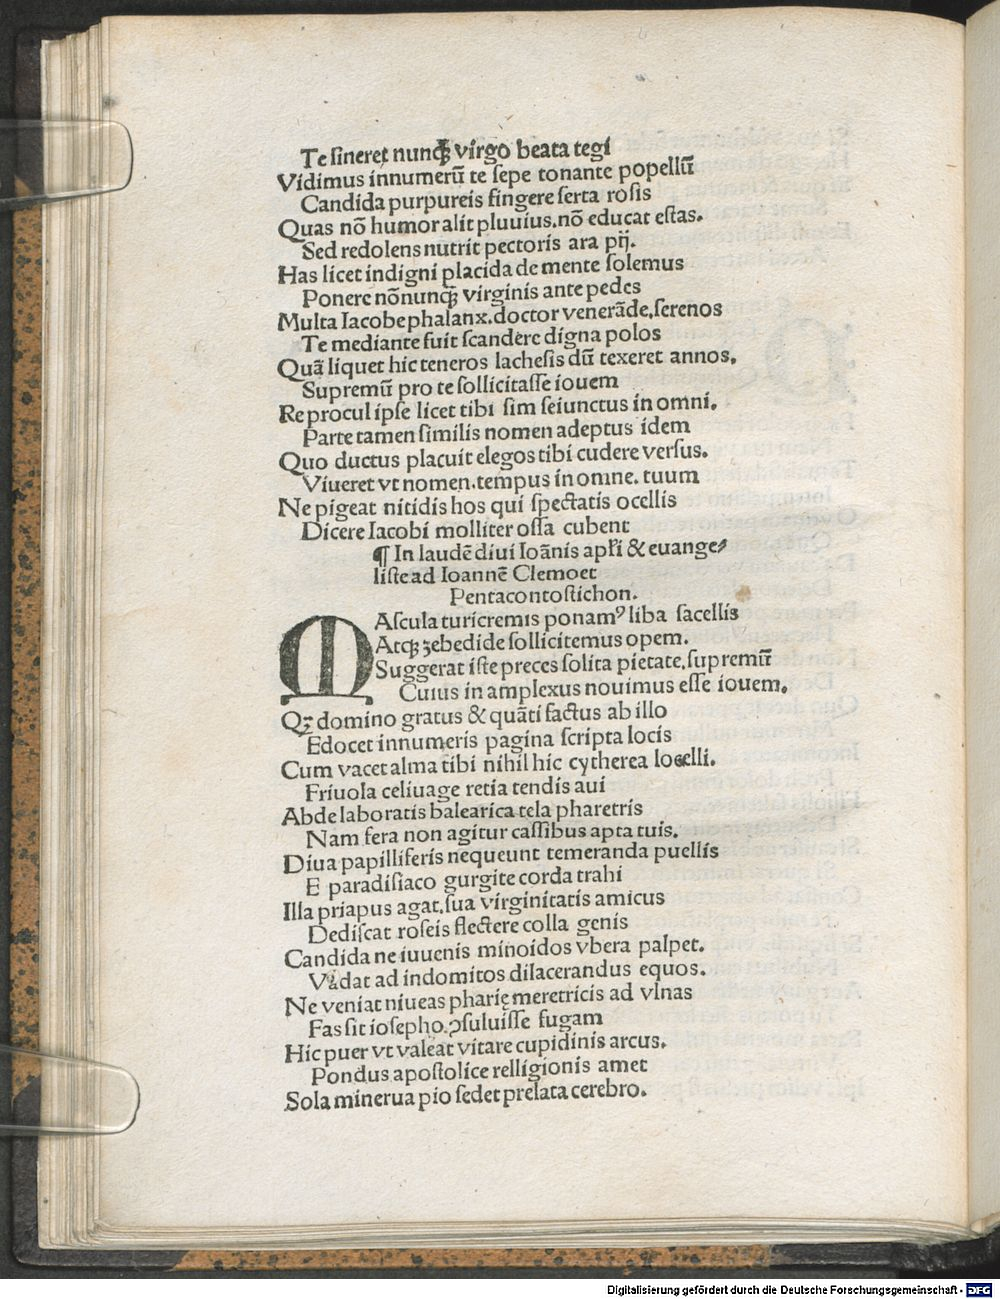 Te sineret nunꝙ̃ virgo beata tegi
Vidimus innumerū te sepe tonante popellū
Candida purpureis fingere serta rosis
Quas nō humor alit pluuius.nō educat estas.
Sed redolens nutrit pectoris ara pij.
Has licet indigni placida de mente solemus
Ponere nōnunꝙ̃ virginis ante pedes
Multa Iacobe phalanx.doctor venerāde,serenos
Te mediante fuit scandere digna polos
Quā liquet hic teneros lachesis dū texeret annos.
Supremū pro te sollicitasse iouem
Re procul ipse licet tibi sim seiunctus in omni.
Parte tamen similis nomen adeptus idem
Quo ductus placuit elegos tibi cudere versus.
Viueret vt nomen.tempus in omne. tuum
Ne pigeat nitidis hos qui spectatis ocellis
Dicere Iacobi molliter ossa cubent
¶ In laudē diui Ioānis apɫi & euange⸗
liste ad Ioannē Clemoet
Pentacontostichon.
MAscula turicremis ponamꝰ liba sacellis
Atqꝫ ȝebedide sollicitemus opem.
Suggerat iste preces solita pietate,supremū
Cuius in amplexus nouimus esse iouem.
Qꝫ domino gratus & quāti factus ab illo
Edocet innumeris pagina scripta locis
Cum vacet alma tibi nihil hic cytherea locelli.
Friuola celiuage retia tendis aui
Abde laboratis balearica tela pharetris
Nam fera non agitur cassibus apta tuis.
Diua papilliferis nequeunt temeranda puellis
E paradisiaco gurgite corda trahi
Illa priapus agat.sua virginitatis amicus
Dediscat roseis flectere colla genis
Candida ne iuuenis minoidos vbera palpet.
Vadat ad indomitos dilacerandus equos.
Ne veniat niueas pharię meretricis ad vlnas
Fas sit iosepho.ꝯsuluisse fugam
Hic puer vt valeat vitare cupidinis arcus.
Pondus apostolice relligionis amet
Sola minerua pio sedet prelata cerebro.
Digitalisierung gefördert durch die Deutsche Forschungsgemeinschaft - DFG